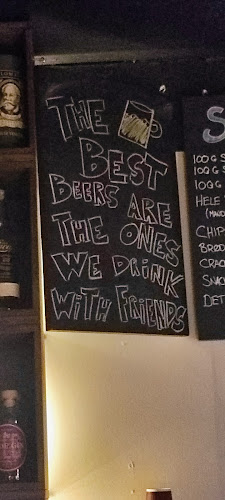 THE
BEST
BEERS ARE
THE ONES
WE DRINK
WITH FRIENDS
S
100G S
100G S
100G
HELE
CHIPS
BRØD
CRAC
SNAC
DET